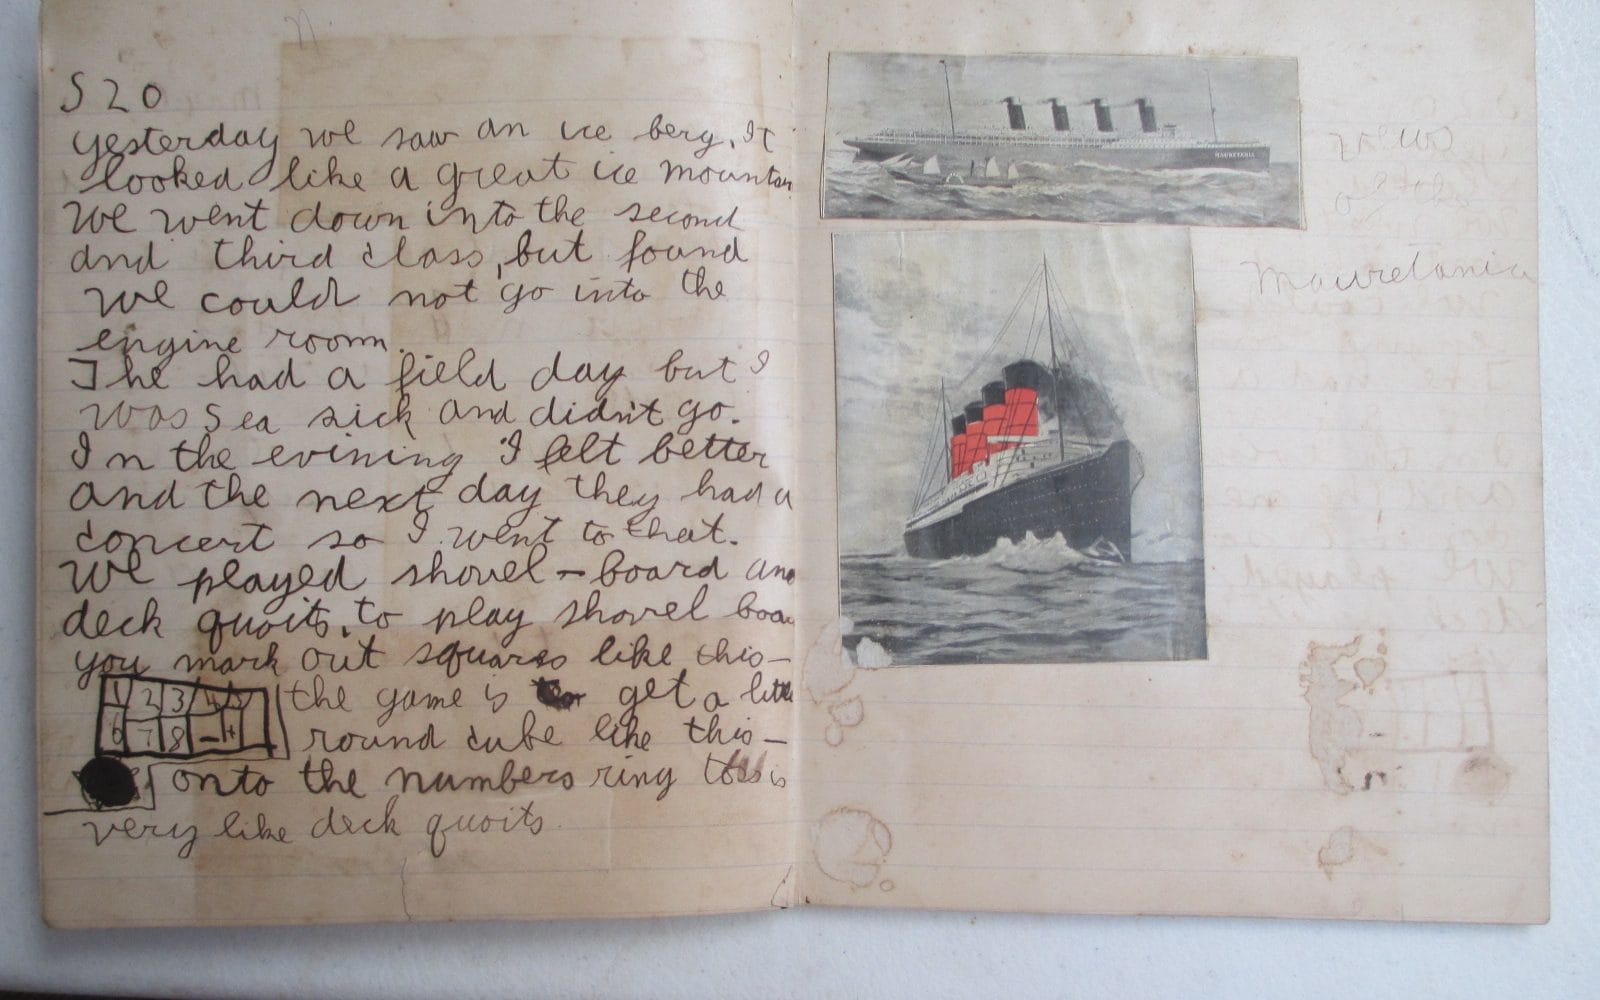 S 20
yesterday we saw an ice berg. It
looked like a great ice mountain
We went down into the second
and third class, but found
we could not go into the
engine room.
The had a field day but I
was sea sick and didn't go.
In the evining I felt better
and the next day they had a
concert so I went to that.
We played shovel-board and
deck quoits. to play shovel board
you mark out squares like this-
1 2 3 4 5
6 7 8 - +
the game is get a little
round cube like this-
onto the numbers ring toss is
very like deck quoits.
MAURETANIA
views
of the
Mauretania